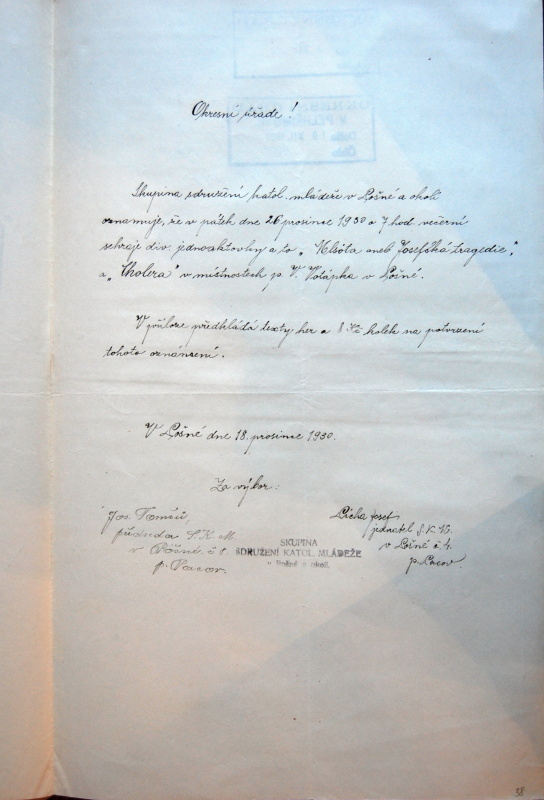 Okresní úřade!
Skupina sdružení katol. mládeže v Lošné a okolí
oznamuje, že v pátek dne 26 prosince 1930 o 7 hod. večerní
sehraje div. jednoaktovky a to „ aneb Josefská tragedie",
a „Cholera" v místnostech p. V. Votápka v Lošné.
V příloze předkládá texty her a 8 Kč kolek na potvrzení
tohoto oznámení.
V Lošné dne 18. prosince 1930.
Za výbor:
Jos. Tomšů,
předseda S.K.M.
v č 1
p. Pacov.
Lícha Josef
jednatel S.K.M.
v Lošné č. 4.
p. Pacov.
SKUPINA
SDRUŽENÍ KATOL. MLÁDEŽE
v a okolí.
38